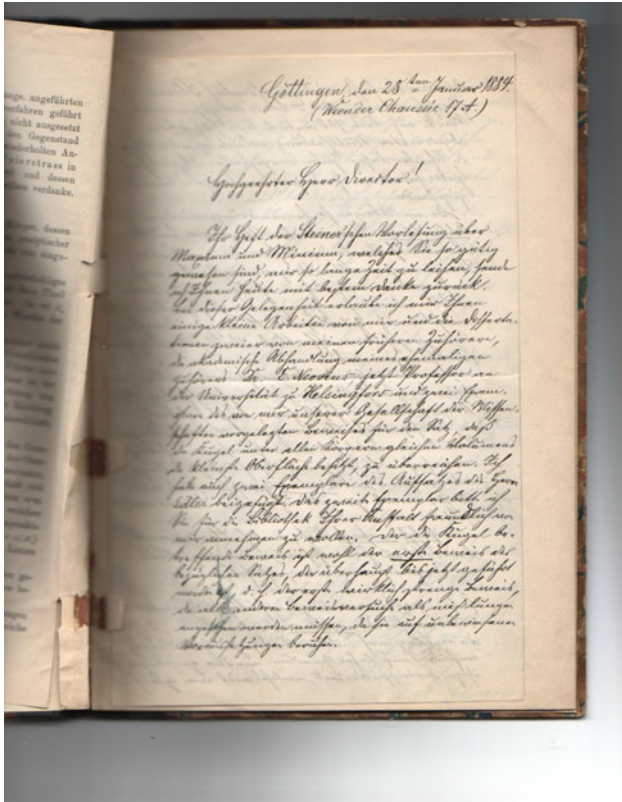 ange. angeführten
erfahren geführt
nicht ausgesetzt
den Gegenstand
wiederholten An-
ierstrass in
und dessen
verdanke.
dessen
analytischer
Göttingen, den 28ten Januar 1884.
(Weender Chaussée 17A.)
Hochgeehrter Herr Director!
Ihr Heft der Steiner'schen Vorlesung über
Maxima und Minima, welches Sie so gütig
gewesen sind, mir so lange Zeit zu leihen, sende
ich Ihnen heute mit bestem Danke zurück.
Bei dieser Gelegenheit erlaube ich mir Ihnen
einige kleine Arbeiten von mir und die Disserta-
tionen zweier von meinen früheren Zuhörern,
die akademische Abhandlung meines ehemaligen
Zuhörers Dr. E. Neovius jetzt Professor an
der Universität zu Helsingfors und zwei Exem-
plare des von mir unserer Gesellschaft der Wissen-
schaften vorgelegten Beweises für den Satz, daß
die Kugel unter allen Körpern gleichen Volumens
die kleinste Oberfläche besitzt, zu überreichen. Ich
habe auch zwei Exemplare des Aufsatzes des Herrn
Edler beigefügt, das zweite Exemplar bitte ich
Sie für die Bibliothek Ihrer Anstalt freundlich von
mir annehmen zu wollen. Der die Kugel be-
treffende Beweis ist wohl der erste Beweis des
bezüglichen Satzes, der überhaupt bis jetzt geführt
worden ist, d. h. der erste wirklich strenge Beweis,
da alle anderen Beweisversuche als mißlungen
angesehen werden müssen, da sie auf unbewiesenen
Voraussetzungen beruhen.